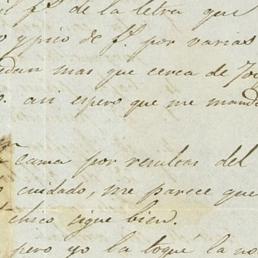 fs. de la letra que
y pico de fs. por varias
mas que cerca de
asi espero que me mand
cama por resultas del
cuidado, me parece que
chico sigue bien.
pero yo la toqué la no